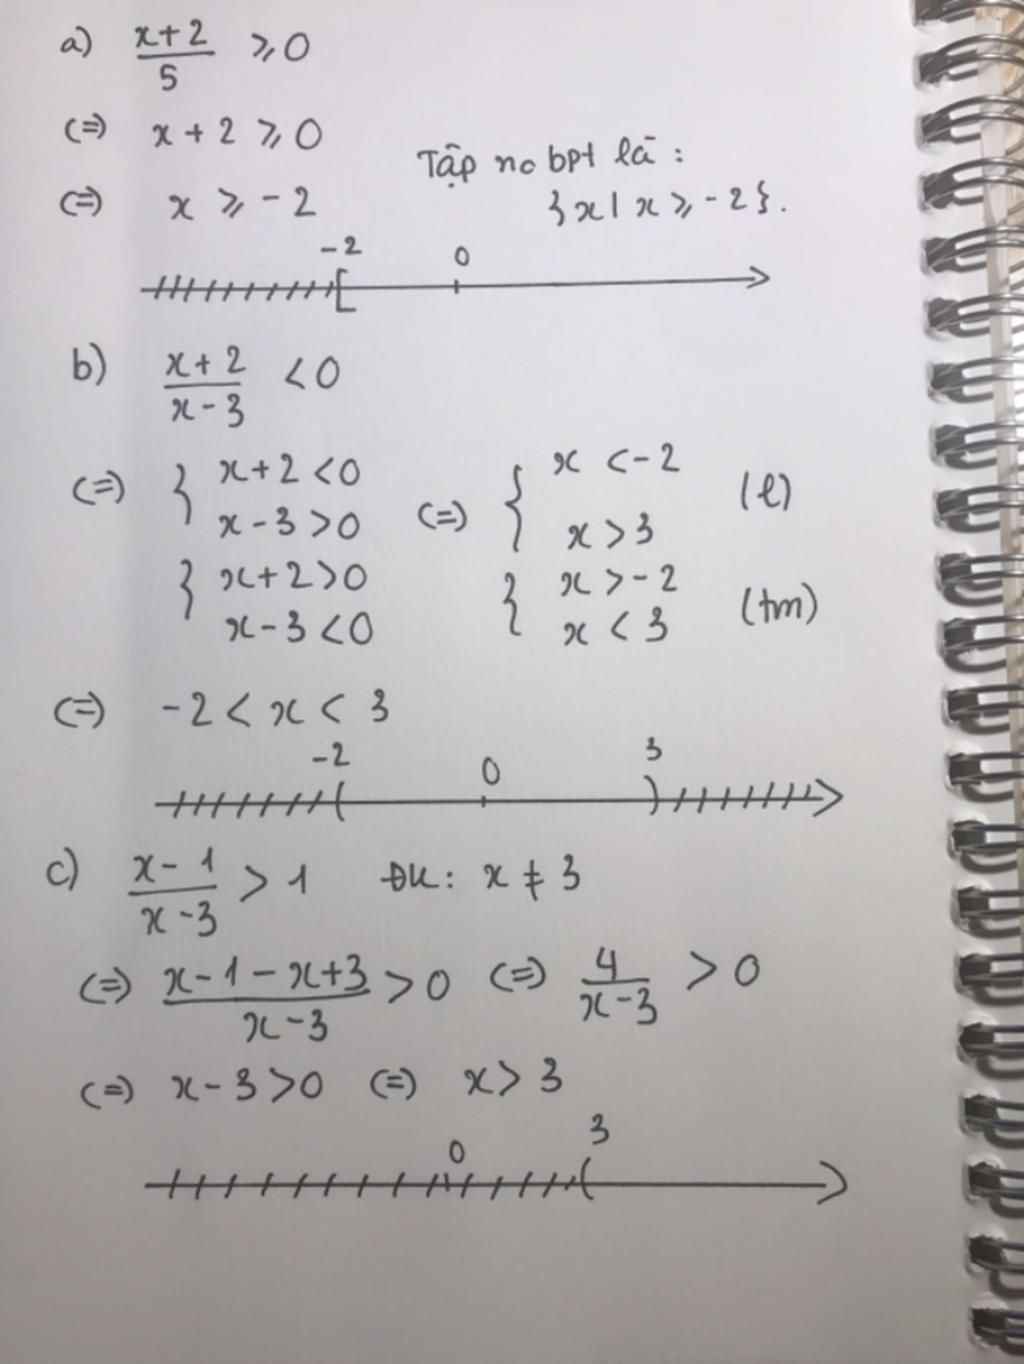 a) x+2/5 ⩾ 0
(=) x + 2 ⩾ 0
Tập no bpt là :
(=) x ⩾ -2 {x | x ⩾ -2}.
-2 0
b) x+2/x-3 < 0
(=) { x+2 < 0 (=) { x < -2 (l)
x - 3 > 0 x > 3
{ x+2 > 0 { x > -2 (tm)
x - 3 < 0 x < 3
(=) -2 < x < 3
-2 0 3
c) x - 1/x - 3 > 1 ĐK: x ≠ 3
(=) x - 1 - x + 3/x - 3 > 0 (=) 4/x - 3 > 0
(=) x - 3 > 0 (=) x > 3
0 3